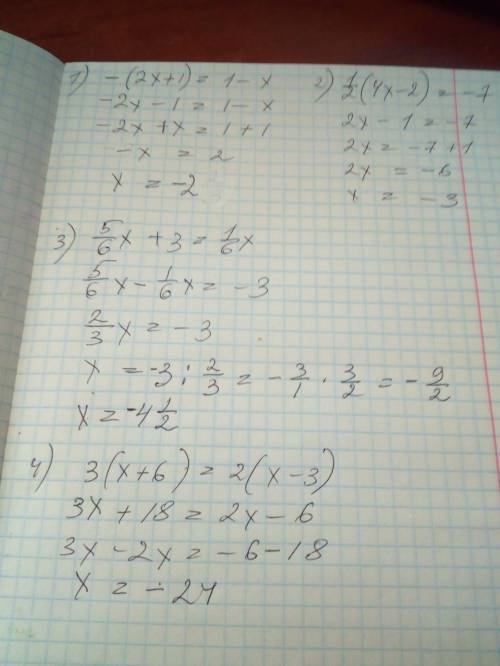 1) -(2x+1) = 1 - x
-2x - 1 = 1 - x
-2x + x = 1 + 1
-x = 2
x = -2
2) 1/2(4x-2) = -7
2x - 1 = -7
2x = -7 + 1
2x = -6
x = -3
3) 5/6x + 3 = 1/6x
5/6x - 1/6x = -3
2/3x = -3
x = -3 : 2/3 = -3/1 · 3/2 = -9/2
x = -4 1/2
4) 3(x+6) = 2(x-3)
3x + 18 = 2x - 6
3x - 2x = -6 - 18
x = -24